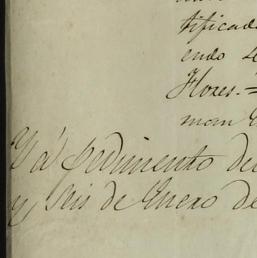 tificad
endo se
Flores.=
mom
Y á pedimento de
y seis de Enero de